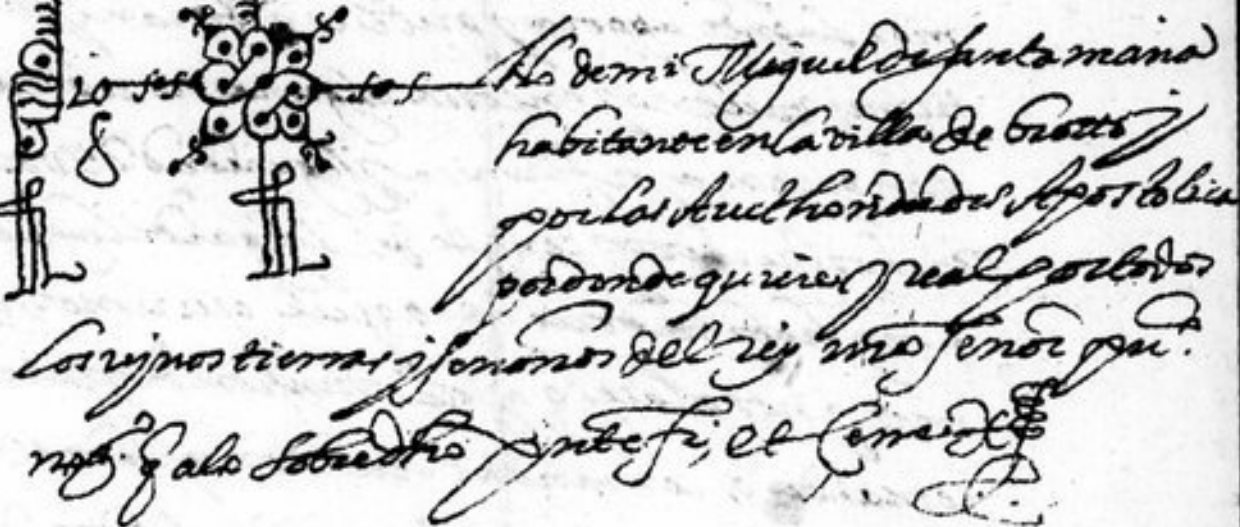 Sig no de mi Miguel de Santa maria
habitante en la villa de brotto y
por las Authoridades Apostolica
por donde quiere y real por todos
los rejnos tierras y senorios del rey nro senor pu.co
not.o q a lo sobredho pnte fui, et cerre